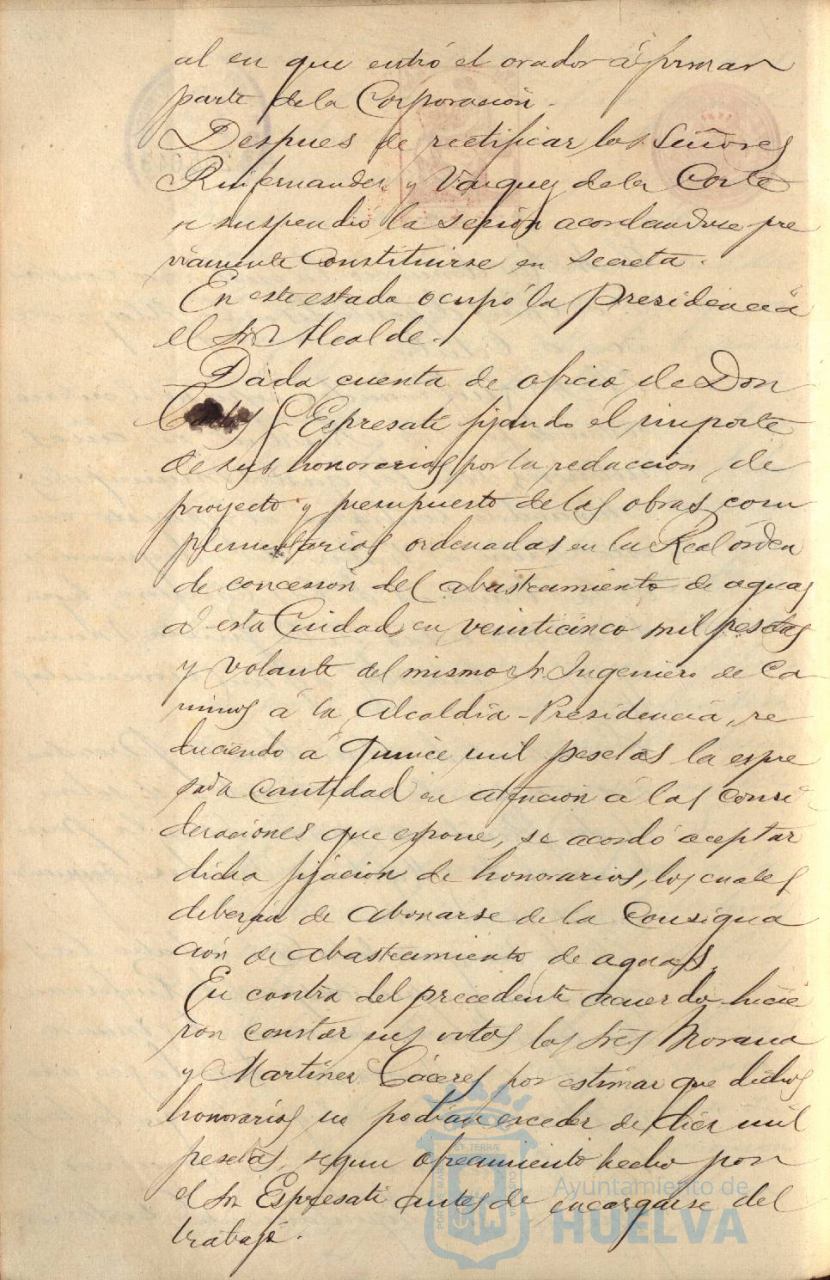 al en que entró el orador á formar
parte de la Corporación.
Despues de rectificar los Señores
Ruifernandez y Vazquez de la Corte
se suspendió la seción acordandose pre
viamente Constituirse en secreta.
En este estado ocupó la Presidencia
el Sr. Alcalde.
Dada cuenta de oficio de Don
Espresati fijando el importe
de sus honorarios por la redacción de
proyecto y presupuesto de las obras com
plementarias ordenadas en la Real órden
de concesion del abastecamiento de aguas
á esta Ciudad, en veinticinco mil pesetas
y volante del mismo Sr. Ingeniero de Ca-
minos á la Alcaldia-Presidencia, re
duciendo á Quince mil pesetas la espre
sada cantidad en atencion á las consi
deraciones que espone, se acordó aceptar
dicha fijación de honorarios, los cuales
deberán de abonarse de la Consigna
ción de abastecamiento de aguas.
En contra del precedente acuerdo hicie
ron constar sus votos los Sres Morana
y Martinez Cáceres por estimar que dichos
honorarios no podian exceder de diez mil
pesetas, segun ofrecimiento hecho por
el Sr. Espresati antes de encargarse del
trabajo.
Ayuntamiento de
HUELVA